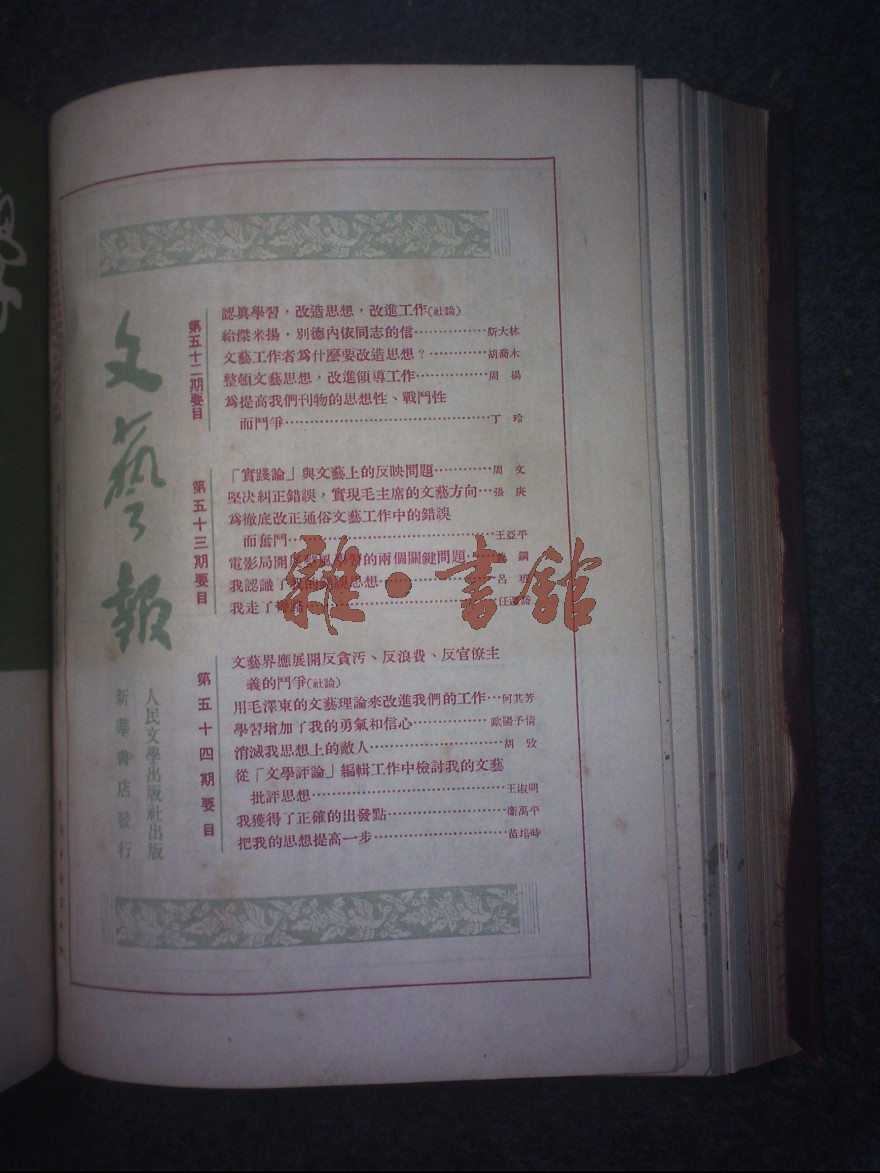 文藝報
人民文學出版社出版
新華書店發行
第五十二期要目
認眞學習，改造思想，改進工作(社論)
給傑米揚·別德內依同志的信……………斯大林
文藝工作者爲什麼要改造思想？…………胡喬木
整頓文藝思想，改進領導工作……………周揚
爲提高我們刊物的思想性、戰鬥性
而鬥爭……………………………………丁玲
第五十三期要目
「實踐論」與文藝上的反映問題…………周文
堅決糾正錯誤，實現毛主席的文藝方向…張庚
爲徹底改正通俗文藝工作中的錯誤
而奮鬥……………………………………王亞平
電影局開展整風學習的兩個關鍵問題……鋼
我認識了我的錯誤思想……………………呂
我走了彎路…………………………………任
第五十四期要目
文藝界應展開反貪汚、反浪費、反官僚主
義的鬥爭(社論)
用毛澤東的文藝理論來改進我們的工作…何其芳
學習增加了我的勇氣和信心………………歐陽予倩
消滅我思想上的敵人………………………胡攷
從「文學評論」編輯工作中檢討我的文藝
批評思想…………………………………王淑明
我獲得了正確的出發點……………………衞禹平
把我的思想提高一步………………………苗培時
雜·書館